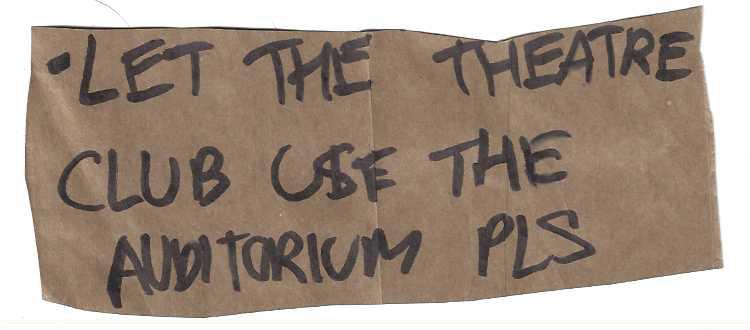 -LET THE THEATRE
CLUB USE THE
AUDITORIUM PLS